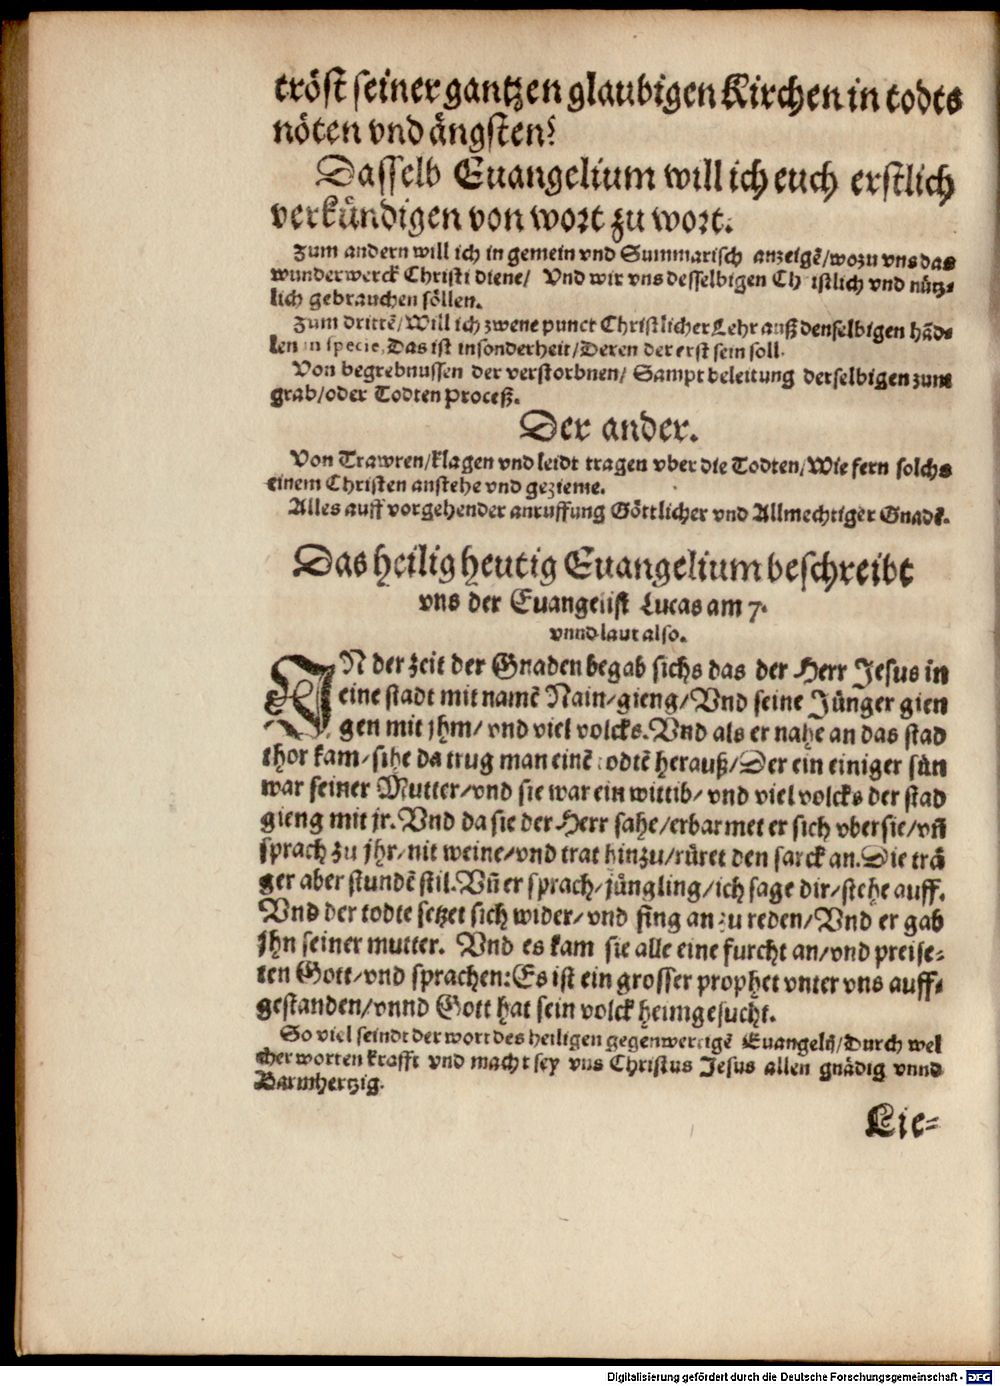 tröst seiner gantzen glaubigen Kirchen in todts
nöten vnd ängsten?
Dasselb Euangelium will ich euch erstlich
verkündigen von wort zu wort.
Zum andern will ich in gemein vnd Summarisch anzeigẽ/wozu vns das
wunderwerck Christi diene/ Vnd wir vns desselbigen Ch istlich vnd nütz⸗
lich gebrauchen söllen.
Zum drittẽ/Will ich zwene punct Christlicher Lehr auß denselbigen hãds
len in specie, Das ist insonderheit/Deren der erst sein soll.
Von begrebnussen der verstorbnen/ Sampt beleitung derselbigen zum
grab/oder Todten proceß.
Der ander.
Von Trawren/klagen vnd leidt tragen vber die Todten/Wie fern solchs
einem Christen anstehe vnd gezieme.
Alles auff vorgehender anruffung Göttlicher vnd Allmechtiger Gnadẽ.
Das heilig heutig Euangelium beschreibt
vns der Euangelist Lucas am 7.
vnnd laut also.
IN der zeit der Gnaden begab sichs das der Herr Jesus in
eine stadt mit namẽ Nain/gieng/Vnd seine Jünger gien
gen mit jhm/ vnd viel volcks. Vnd als er nahe an das stad
thor kam/sihe da trug man einẽ todtẽ herauß/Der ein einiger sün
war seiner Mutter/vnd sie war ein wittib/ vnd viel volcks der stad
gieng mit jr. Vnd da sie der Herr sahe/erbarmet er sich vber sie/vñ
sprach zu jhr/nit weine/vnd trat hinzu/rüret den sarck an. Die trä
ger aber stundẽ stil. Vñ er sprach/jüngling/ich sage dir/stehe auff.
Vnd der todte setzet sich wider/ vnd fing an zu reden/Vnd er gab
jhn seiner mutter. Vnd es kam sie alle eine furcht an/vnd preise⸗
ten Gott/vnd sprachen: Es ist ein grosser prophet vnter vns auff⸗
gestanden/vnnd Gott hat sein volck heimgesucht.
So viel seindt der wort des heiligen gegenwertigẽ Euangelij/Durch wel
cher worten krafft vnd macht sey vns Christus Jesus allen gnädig vnnd
Barmhertzig.
Lie⸗
Digitalisierung gefördert durch die Deutsche Forschungsgemeinschaft - DFG